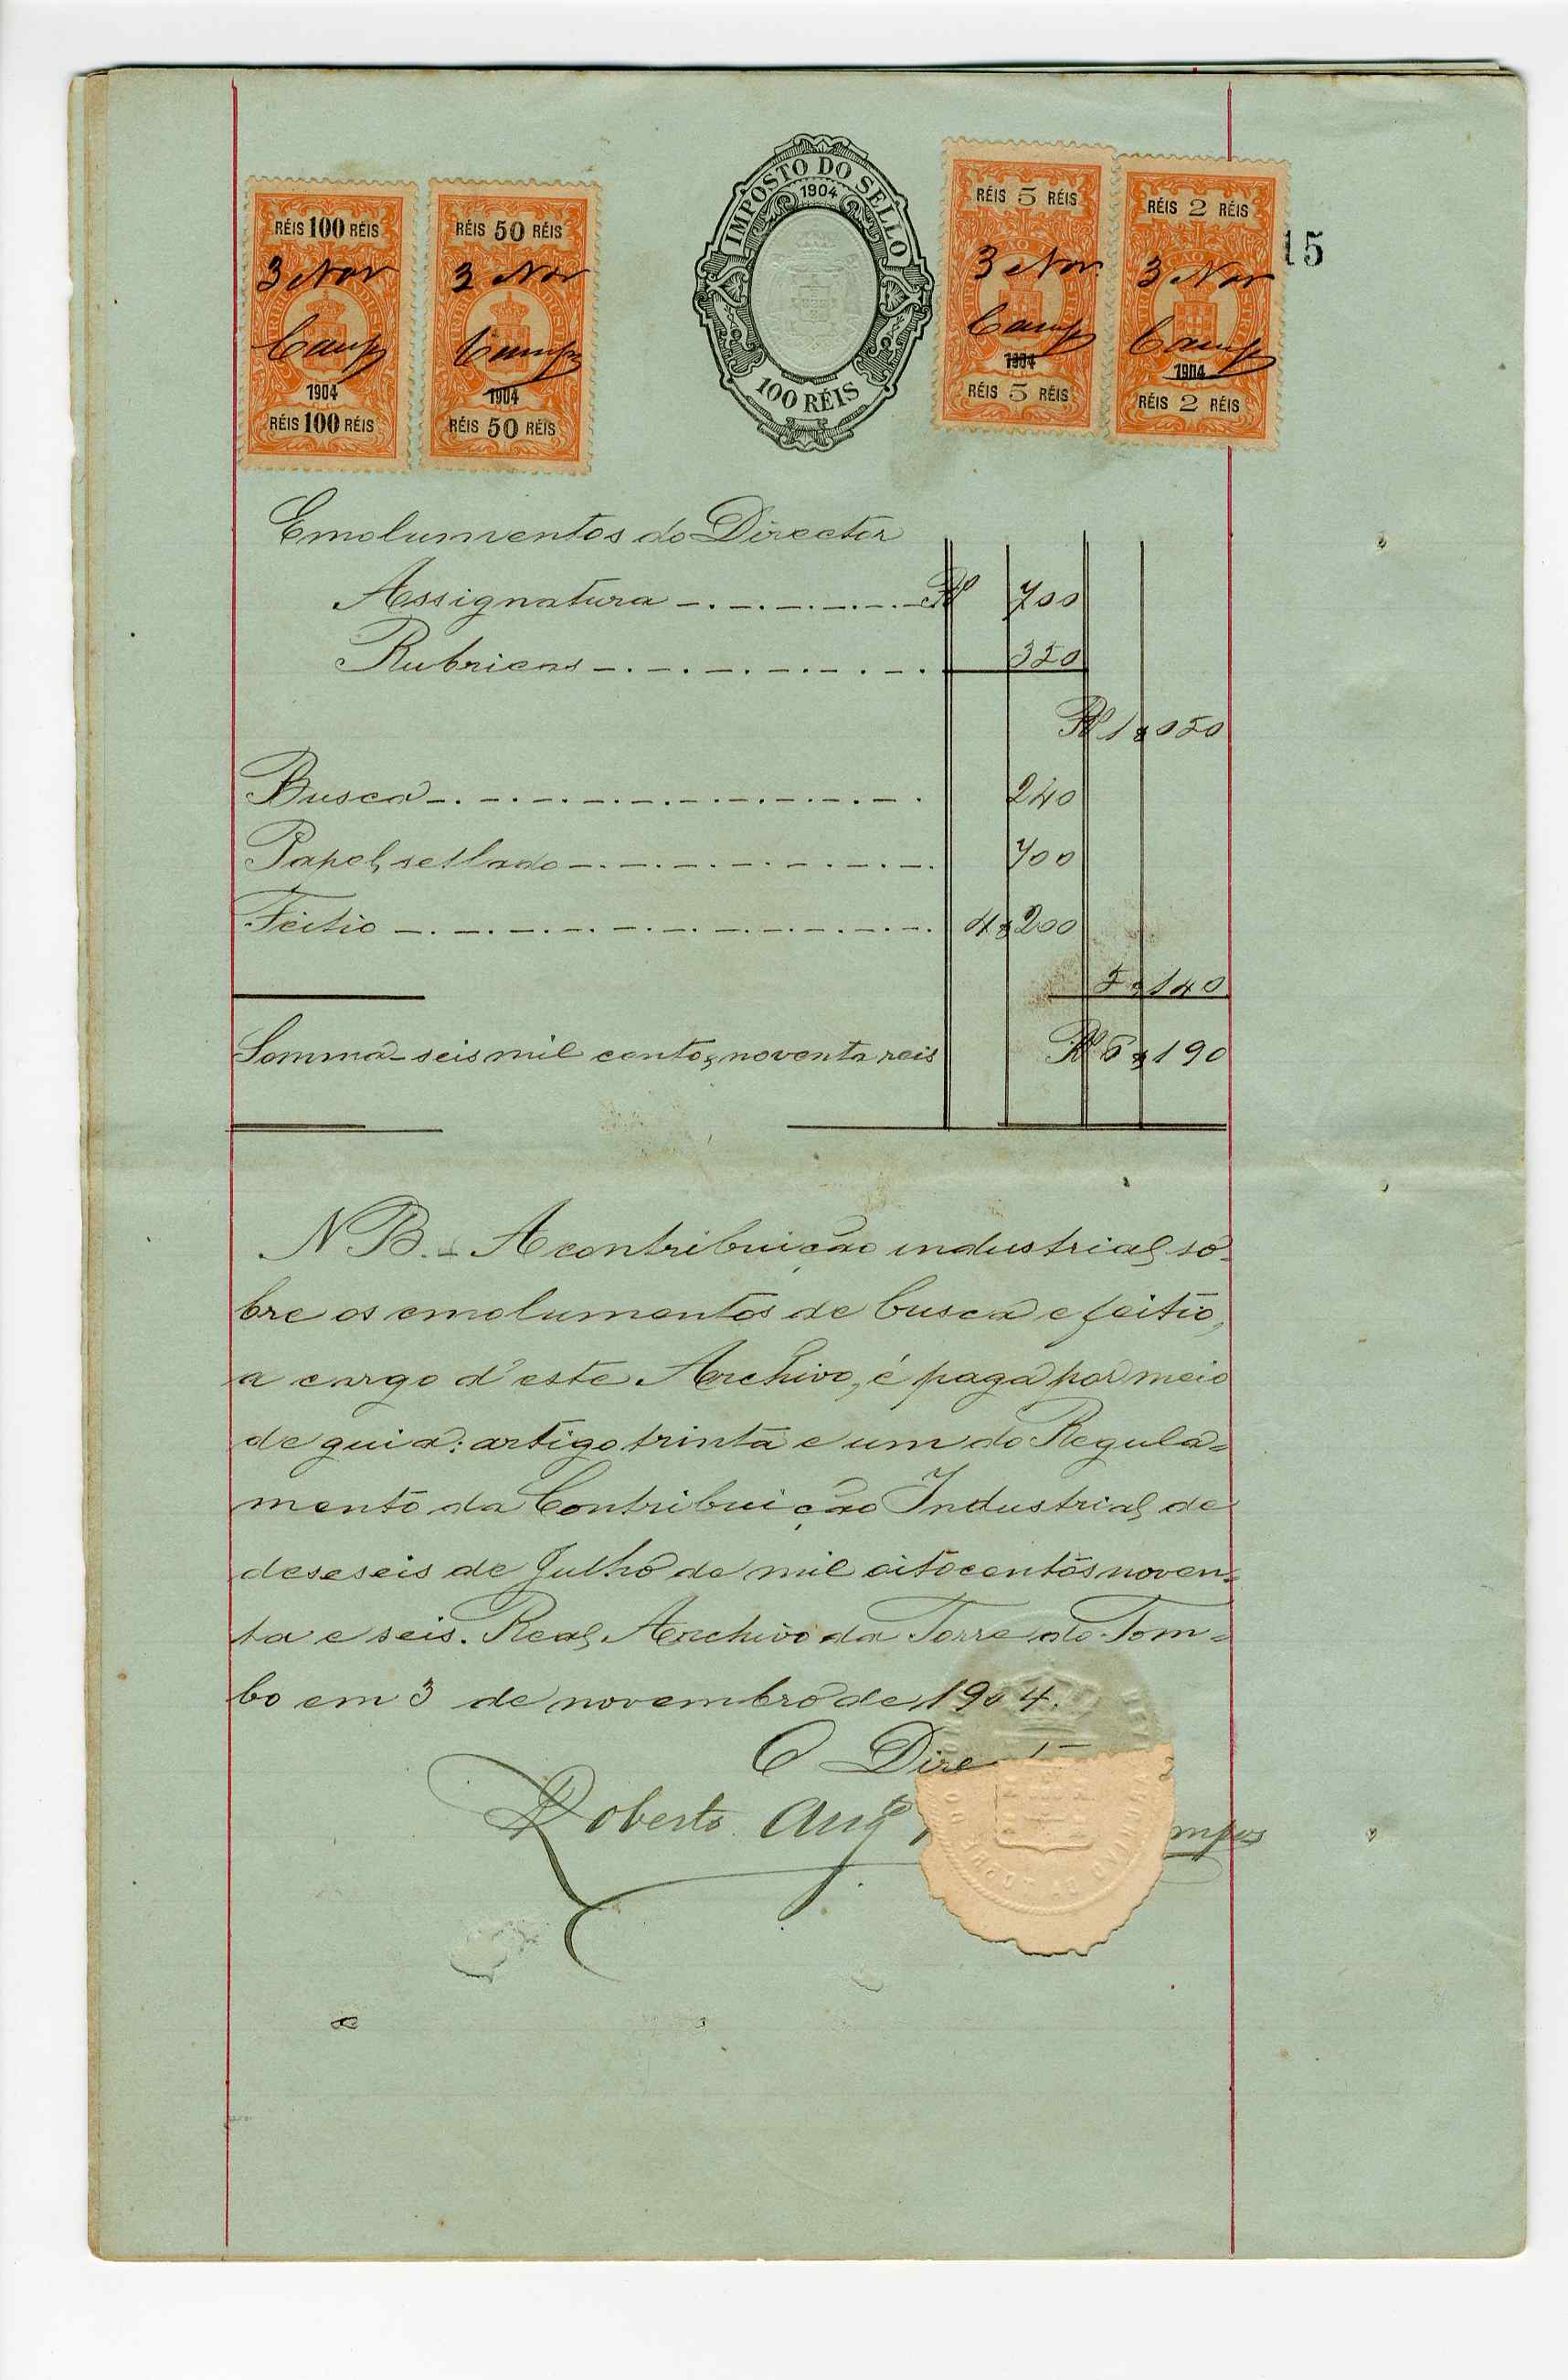 RÉIS 100 RÉIS
3 Nov
Camp
1904
RÉIS 100 RÉIS
RÉIS 50 RÉIS
3 Nov
Camp
1904
RÉIS 50 RÉIS
IMPOSTO DO SELLO
1904
100 RÉIS
RÉIS 5 RÉIS
3 Nov
Camp
1904
RÉIS 5 RÉIS
RÉIS 2 RÉIS
3 Nov
Camp
1904
RÉIS 2 RÉIS
15
Emolumentos do Director
Assignatura R 700
Rubricas 350
R 1$050
Busca 240
Papel sellado 700
Feitio 4$200
5$140
Somma - seis mil cento e noventa reis R 6$190
N B. - A contribuição industrial so-
bre os emolumentos de busca e feitio,
a cargo d'este Archivo, é paga por meio
de guia: artigo trinta e um do Regula-
mento da Contribuição Industrial de
deseseis de Julho de mil oitocentos noven-
ta e seis. Real Archivo da Torre do Tom-
bo em 3 de novembro de 1904.
O Dire
Roberto Aug mpos